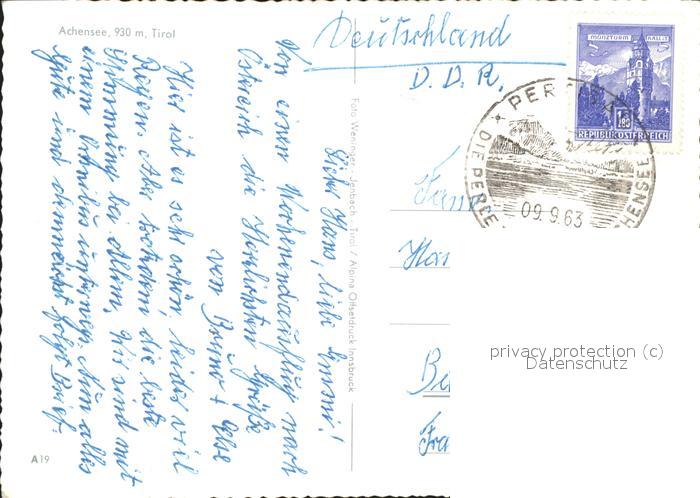 Achensee, 930 m, Tirol
Deutschland
D. D. R.
MÜNZTURM HALL i. T.
1.80
REPUBLIK ÖSTERREICH
PER
DIE PERLE
CHENSEE
09. 9. 63
Lieber Hans, liebe Emmi!
Von einem Wochenendausflug nach
Österreich die herzlichsten Grüße
von Bruno + Else
Hier ist es sehr schön, leider viel
Regen. Aber trotzdem die beste
Stimmung bei allem. Wir sind mit
einem Omnibus unterwegs. Nun alles
Gute und demnächst folgt Brief.
Foto Weninger - Jenbach - Tirol / Alpina Offsetdruck Innsbruck
Fam
Han
Be
Fra
privacy protection (c)
Datenschutz
A 19